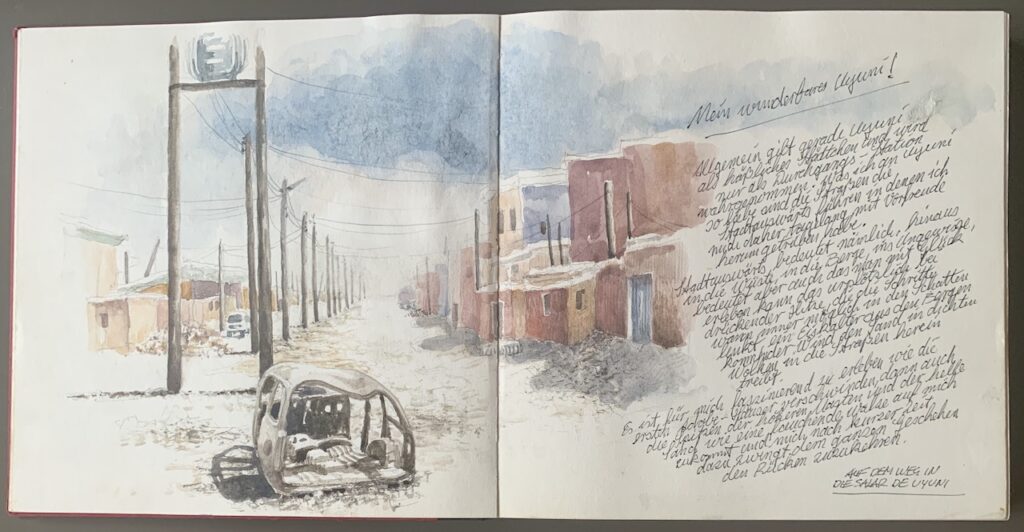 Mein wunderbares Uyuni!
Allgemein gilt gerade Uyuni
als häßliches Städtchen und wird
nur als Durchgangs-Station
wahrgenommen. Was ich an Uyuni
so liebe sind die Straßen die
Stadtauswärts führen in denen ich
mich daher tagelang mit Vorfreude
herumgetrieben habe.
Stadtauswärts bedeutet nämlich, hinaus
in die Wüste, in die Berge, ins Ungewisse,
bedeutet aber auch das man mit Glück
erleben kann das urplötzlich die bei
drückender Hitze, die die Schritte
wann immer möglich in den Schatten
lenkt, ein Eiskalter aus den Bergen
kommender Wind den Sand in dichten
Wolken in die Straßen herein
treibt.
Es ist für mich faszinierend zu erleben wie die
erst Adobe-Häuser verschwinden, dann auch
die Spitzen der höheren Masten und der helle
Sand wie eine fauchende Walze auf mich
zukommt und mich nach kurzer Zeit
dazu zwingt dem ganzen Geschehen
den Rücken zuzukehren.
AUF DEM WEG IN
DIE SALAR DE UYUNI